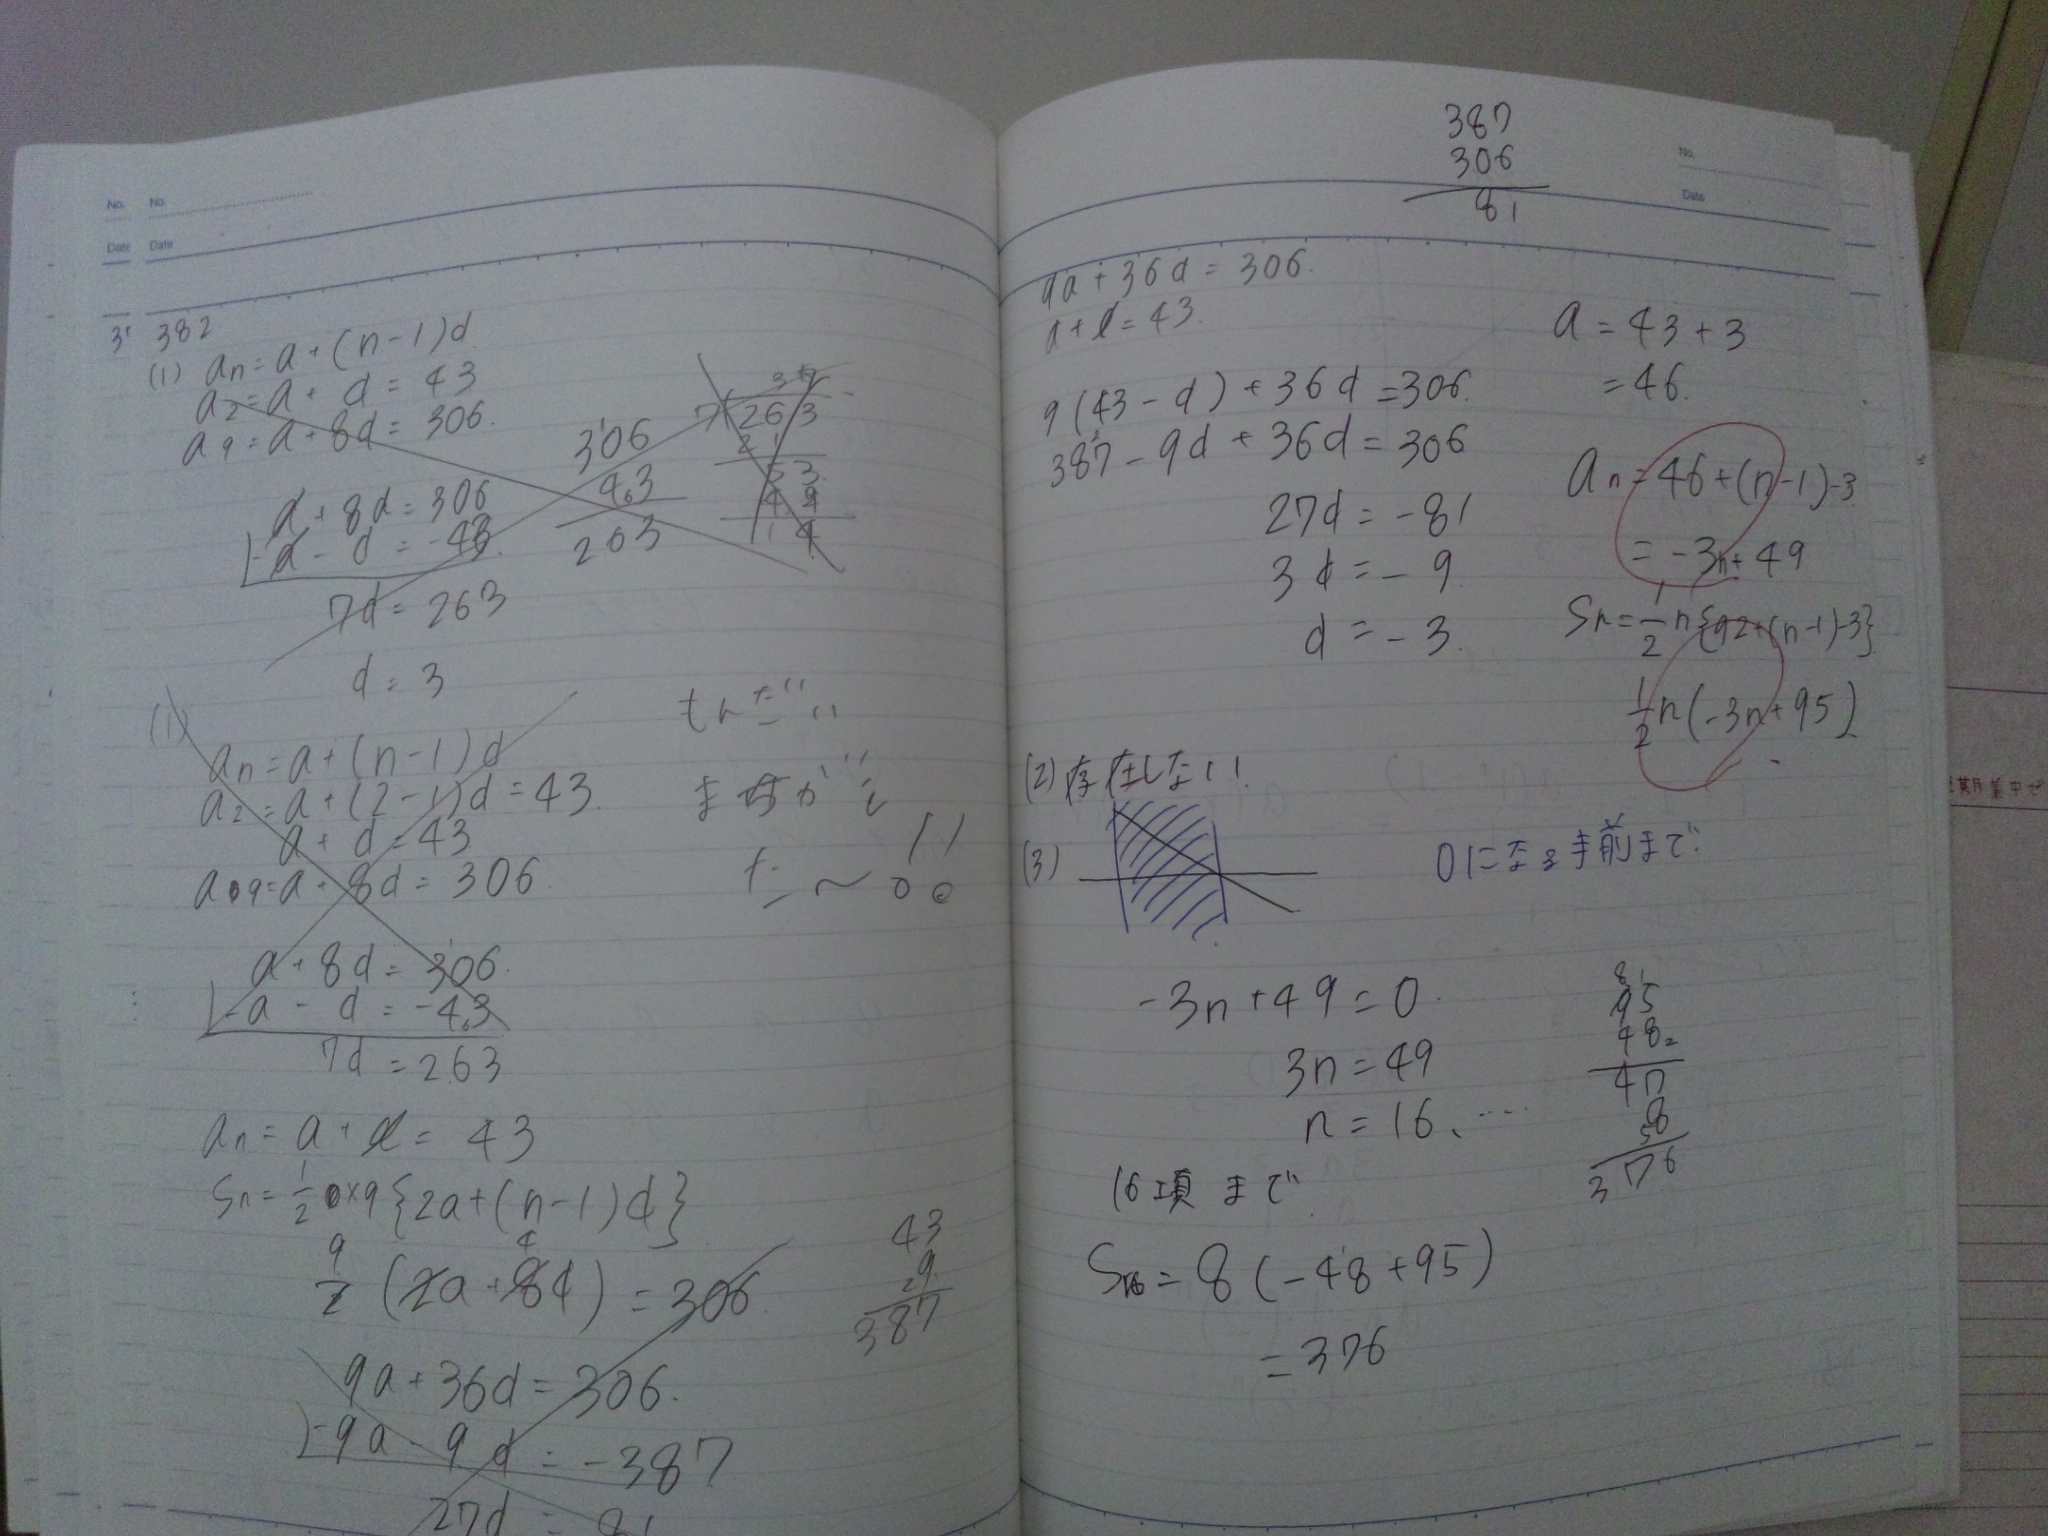 No.
No.
Date
Date
382
(1) an=a+(n-1)d
a2=a+d=43
a9=a+8d=306.
a+8d=306
-a-d=-43
7d=263
d=3
306
43
263
7 263
21
53
49
14
(1)
an=a+(n-1)d
a2=a+(2-1)d=43.
a+d=43
a9=a+8d=306
もんだい
まちがえ
た〜!!
a+8d=306.
-a-d=-43
7d=263
an=a+d=43
Sn=1/2×9{2a+(n-1)d}
9/2(2a+8d)=306.
4
43
9
387
9a+36d=306.
-9a-9d=-387
27d=81
387
306
81
No.
Date
9a+36d=306.
a+d=43.
9(43-d)+36d=306.
387-9d+36d=306
27d=-81
3d=-9
d=-3.
a=43+3
=46.
an=46+(n-1)-3
=-3n+49
Sn=1/2n{92+(n-1)-3}
1/2n(-3n+95)
(2)存在しない!
(3)
0になる手前まで.
-3n+49=0.
3n=49
n=16.…
95
48
47
8
376
16項まで
S16=8(-48+95)
=376